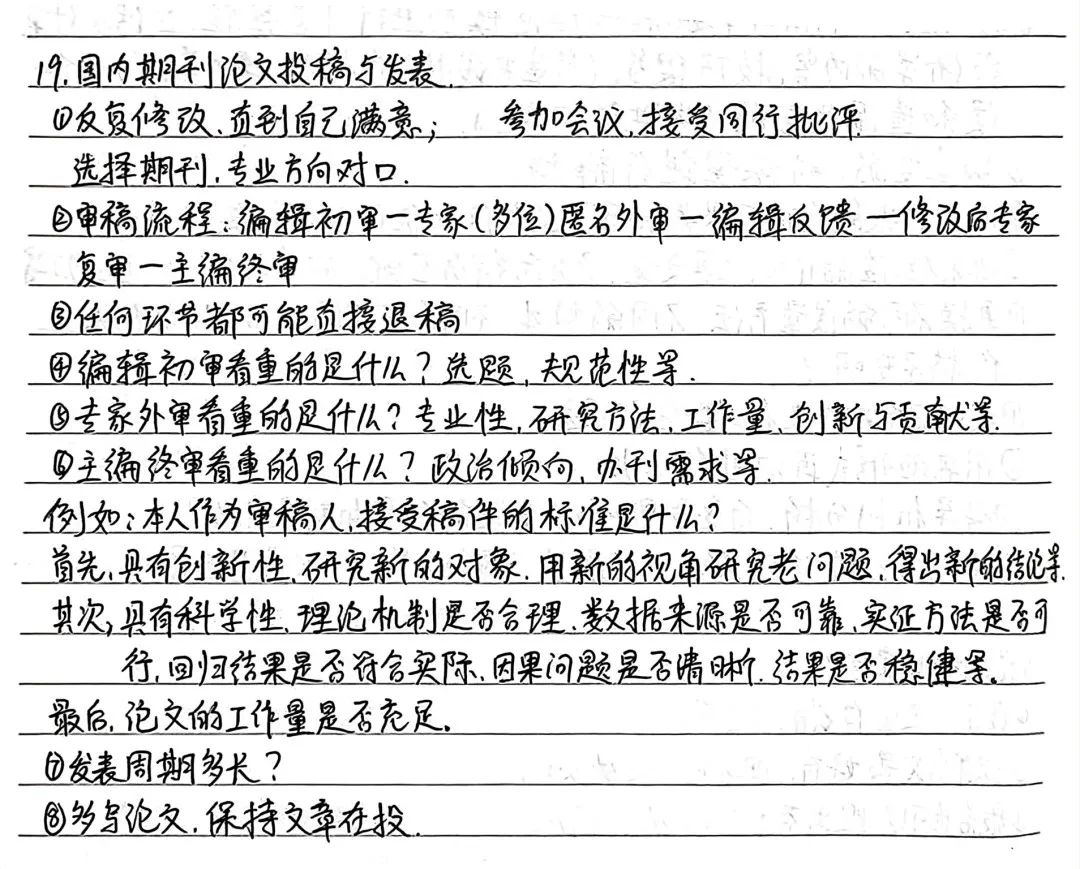 19.国内期刊论文投稿与发表.
①反复修改,直到自己满意; 参加会议,接受同行批评.
选择期刊,专业方向对口.
②审稿流程:编辑初审一专家(多位)匿名外审一编辑反馈一修改后专家
复审一主编终审
③任何环节都可能直接退稿
④编辑初审看重的是什么?选题,规范性等.
⑤专家外审看重的是什么?专业性,研究方法,工作量,创新与贡献等.
⑥主编终审看重的是什么?政治倾向,办刊需求等.
例如:本人作为审稿人,接受稿件的标准是什么?
首先,具有创新性,研究新的对象.用新的视角研究老问题,得出新的结论等.
其次,具有科学性,理论机制是否合理.数据来源是否可靠,实证方法是否可
行,回归结果是否符合实际,因果问题是否清晰.结果是否稳健等。
最后,论文的工作量是否充足。
⑦发表周期多长?
⑧多写论文,保持文章在投.